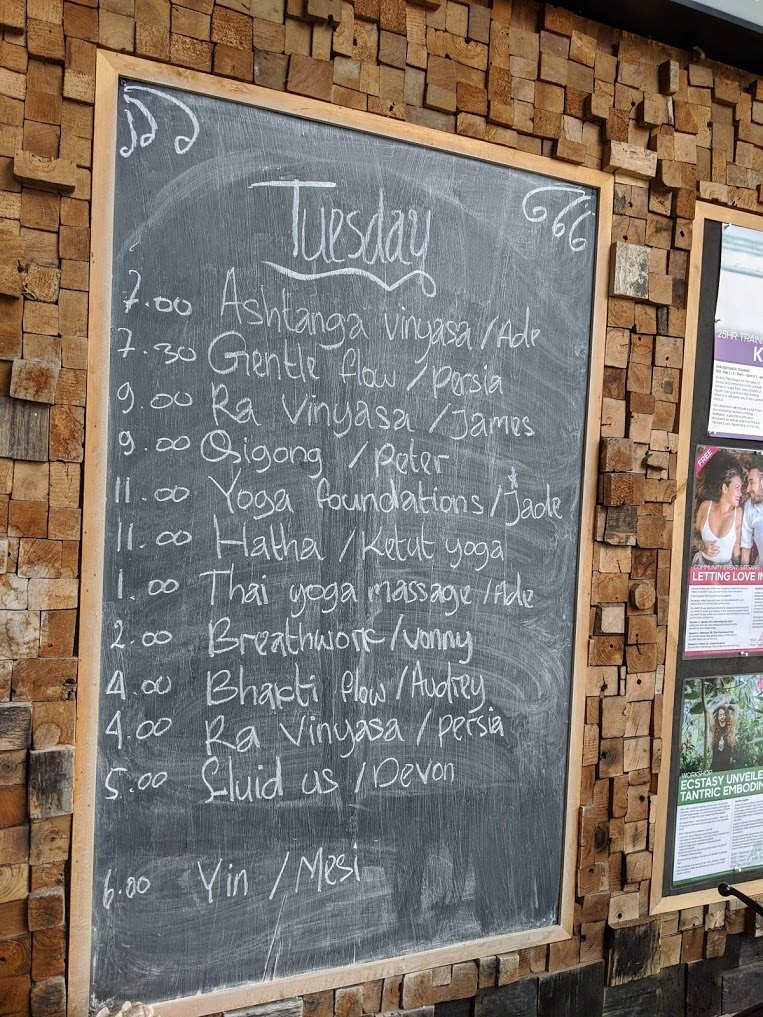 Tuesday
7.00 Ashtanga vinyasa / Ade
7.30 Gentle flow / persia
9.00 Ra Vinyasa / James
9.00 Qigong / peter
11.00 Yoga foundations / Jade
11.00 Hatha / Ketut yoga
1.00 Thai yoga massage / Ade
2.00 Breathwork / vonny
4.00 Bhakti flow / Audrey
4.00 Ra Vinyasa / persia
5.00 fluid us / Devon
6.00 Yin / Mesi
25HR TRAIN
K
FREE
COMMUNITY EVENT: SATSANG
LETTING LOVE IN
WORKSHOP
ECSTASY UNVEILE
TANTRIC EMBODIM